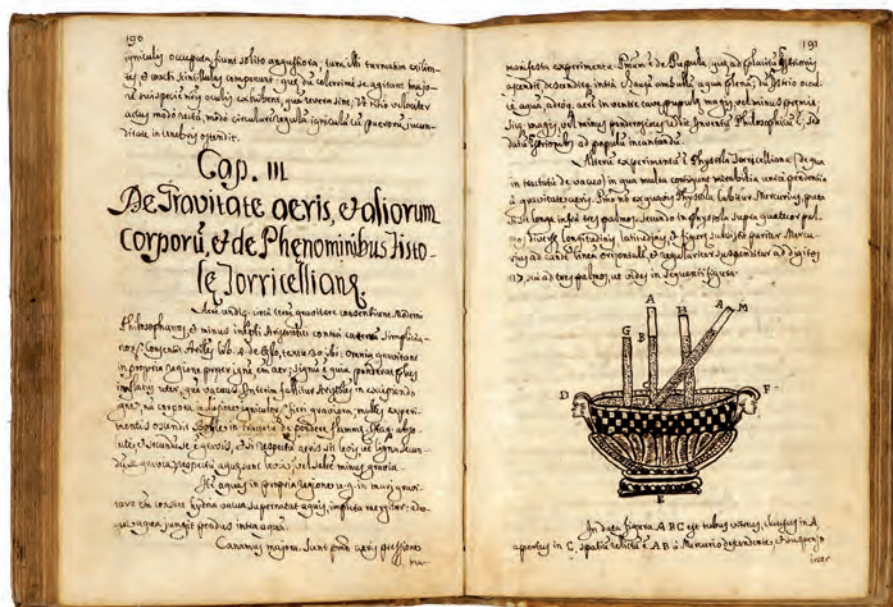 190
igniculis occupata fiunt solito angustiora; tum illi turmatim exilien-
tes et coacti scintillulas componunt: quę dũ celerrimè se agitant majo-
rẽ sui speciẽ nr̃is oculis exhibent, quã revera sint,
actus modò rectã, modò circularẽ regulã igniculi cũ puerorũ jucun-
ditate in tenebris ostendit.
Cap. III
De Gravitate aeris, et aliorum
Corporũ, et de Phenominibus Fisto-
lę Torricellianę.
Aerẽ undiq. circà terrã gravitare consentiunt Moderni
Philosophantes, et minus Aristotelici contrà
Consensit Arist̃les lib. 4. de Cęlo, textu 30 ibi: Omnia gravitant
in propria regione pręter ignẽ, ẽm aer; signũ ẽ quia
uter, quã vacuus. Interim fallitur Arist̃les in excipiendo
igne, nã corpora fieri graviora, multis experi-
mentis ostendit Boyle in tractatu de pondere flammę.
et secundũ se ẽ gravis, et si respectu aeris sit levis, ut ligna secun-
dũ se gravia, respectu aquę sunt levia, vel saltẽ minus gravia.
Itẽ aquas in propria regione v.g. in mari gravi-
tare cõstat hydria vacua supernatat aquis, impleta mergitur: adeo-
que aqua jungit pondus intra aquã.
Canamus majora. Sunt pr̃mò aeris pressione
ma-
191
manifesta experimenta. Pr̃mum ẽ de Pupula, quę ad placitũ Histrionis
ascendit descenditq. intrà aqua plena; dũ Histrio
aquã, adeoq. aerẽ in ventre cavę pupulę magis, vel minus premit,
sitq. magis, vel minus ponderosior. Inventũ Philosophicũ ẽ, sed
datũ Histrionibus ad populũ incantandũ.
Alterũ experimentũ ẽ Phystola Torricelliana (de qua
in tractatu de vacuo) in qua multa contingunt mirabilia unicè pendentia
à gravitate aeris. Pr̃mò nõ ex quavis Phystola labitur Mercurius, puta
si sit longa infrà tres palmos. Secundò in phystola supra quatuor pal-
mos diversę longitudinis latitudinis, et figurę subsistit pariter Mercu-
rius ad eandẽ lineã orizontalẽ, et regulariter suspenditur ad digitos
27, seu ad tres palmos, ut vides in sequenti figura.
A
H
A
M
G
B
C
D
F
E
In data figura A B C est tubus vitreus, clausus in A,
apertus in C, spatiũ relictũ ẽ A B à Mercurio descendente, et suspenso
inter